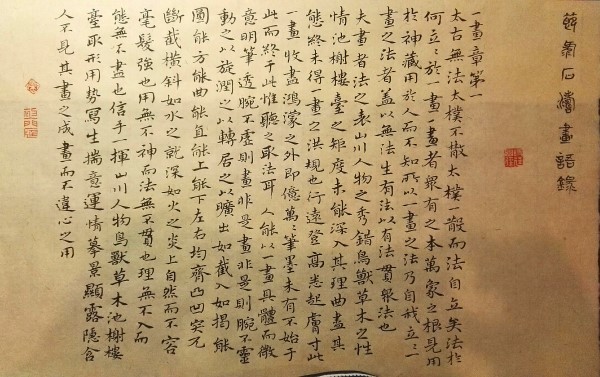 石濤畫語錄
一畫章第一
太古無法太樸不散太樸一散而法自立矣法於
何立立於一畫一畫者眾有之本萬象之根見用
於神藏用於人而不知所以一畫之法乃自我立立一
畫之法者蓋以無法生有法以有法貫眾法也
夫畫者法之表山川人物之秀錯鳥獸草木之性
情池榭樓臺之矩度未能深入其理曲盡其
態終未得一畫之洪規也行遠登高悉起膚寸此
一畫收盡鴻濛之外即億萬萬筆墨未有不始于
此而終于此惟聽之取法耳人能以一畫具體而微
意明筆透腕不虛則畫非是畫非是則腕不靈
動之以旋潤之以轉居之以曠出如截入如揭能
圓能方能曲能直能上能下左右均齊凸凹突兀
斷截橫斜如水之就深如火之炎上自然而不容
毫髮強也用無不神而法無不貫也理無不入而
態無不盡也信手一揮山川人物鳥獸草木池榭樓
臺取形用勢寫生揣意運情摹景顯露隱含
人不見其畫之成畫而不違心之用